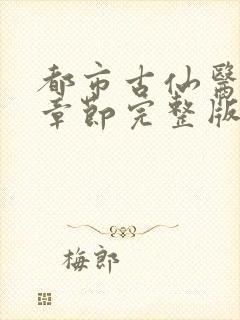 都市古仙醫
章節完整版
梅郎